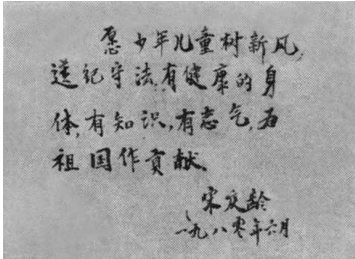 愿少年儿童树新风,
遵纪守法,有健康的身
体,有知识,有志气,为
祖国作贡献。
宋庆龄
一九八零年六月